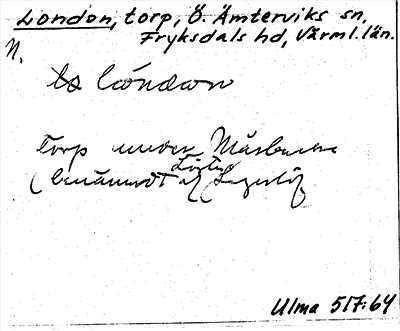 London, torp, Ö. Ämterviks sn,
Fryksdals hd, Värml. län.
N.
lóndon
torp under Mårbacka
(benämndt af Lagerlöf
Ulma 517:64